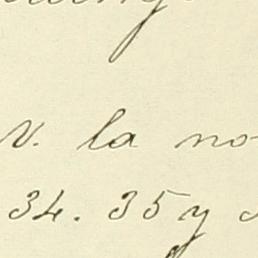 V. la no
34. 35 y